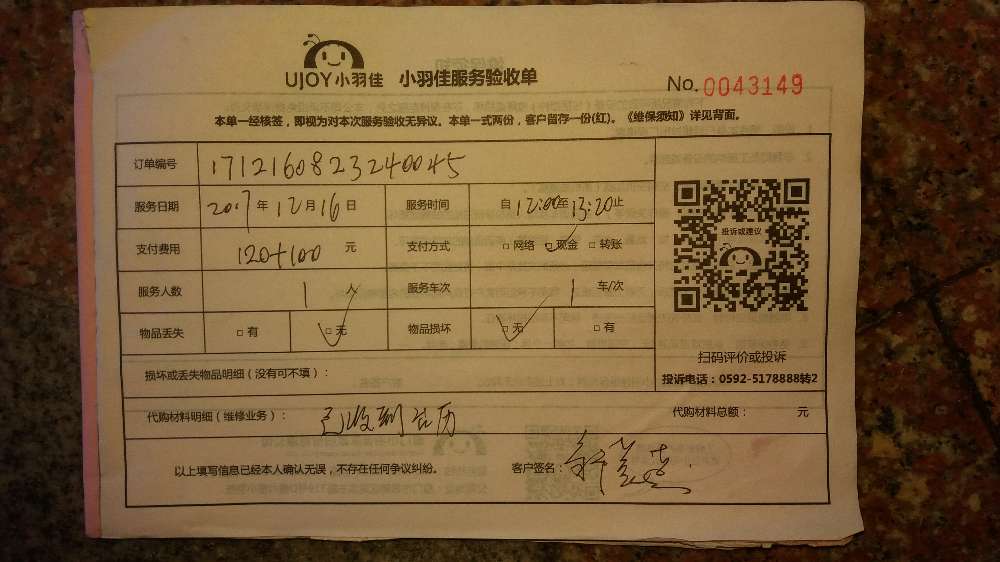 UJOY小羽佳 小羽佳服务验收单
No.0043149
本单一经核签，即视为对本次服务验收无异议。本单一式两份，客户留存一份(红)。《维保须知》详见背面。
订单编号 1712160823240045
服务日期 2017年12月16日 服务时间 自12:00至13:20止
支付费用 120+100 元 支付方式 □网络 □现金 □转账
服务人数 1 人 服务车次 1 车/次
物品丢失 □有 □无 物品损坏 □无 □有
投诉或建议
扫码评价或投诉
投诉电话：0592-5178888转2
损坏或丢失物品明细（没有可不填）：
代购材料明细（维修业务）： 已收到台历 代购材料总额： 元
以上填写信息已经本人确认无误，不存在任何争议纠纷。 客户签名：